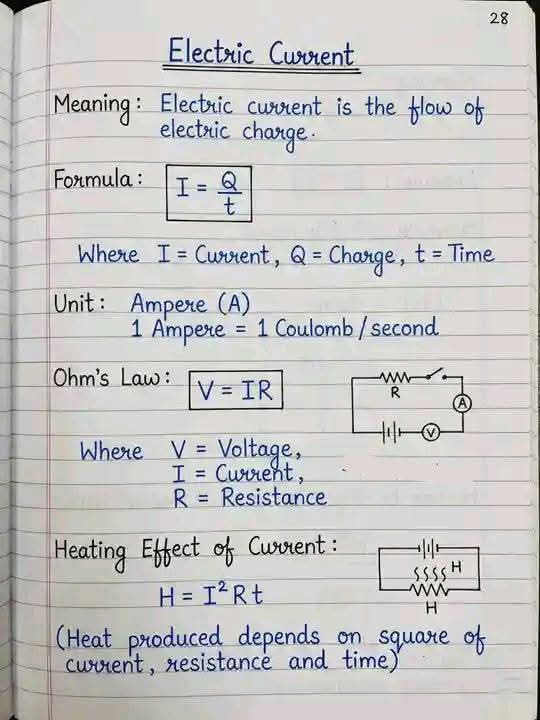 28
Electric Current
Meaning: Electric current is the flow of
electric charge.
Formula: I = Q/t
Where I = Current, Q = Charge, t = Time
Unit: Ampere (A)
1 Ampere = 1 Coulomb/second
Ohm's Law: V = IR
R
A
V
Where V = Voltage,
I = Current,
R = Resistance
Heating Effect of Current:
H
H
H = I² R t
(Heat produced depends on square of
current, resistance and time)